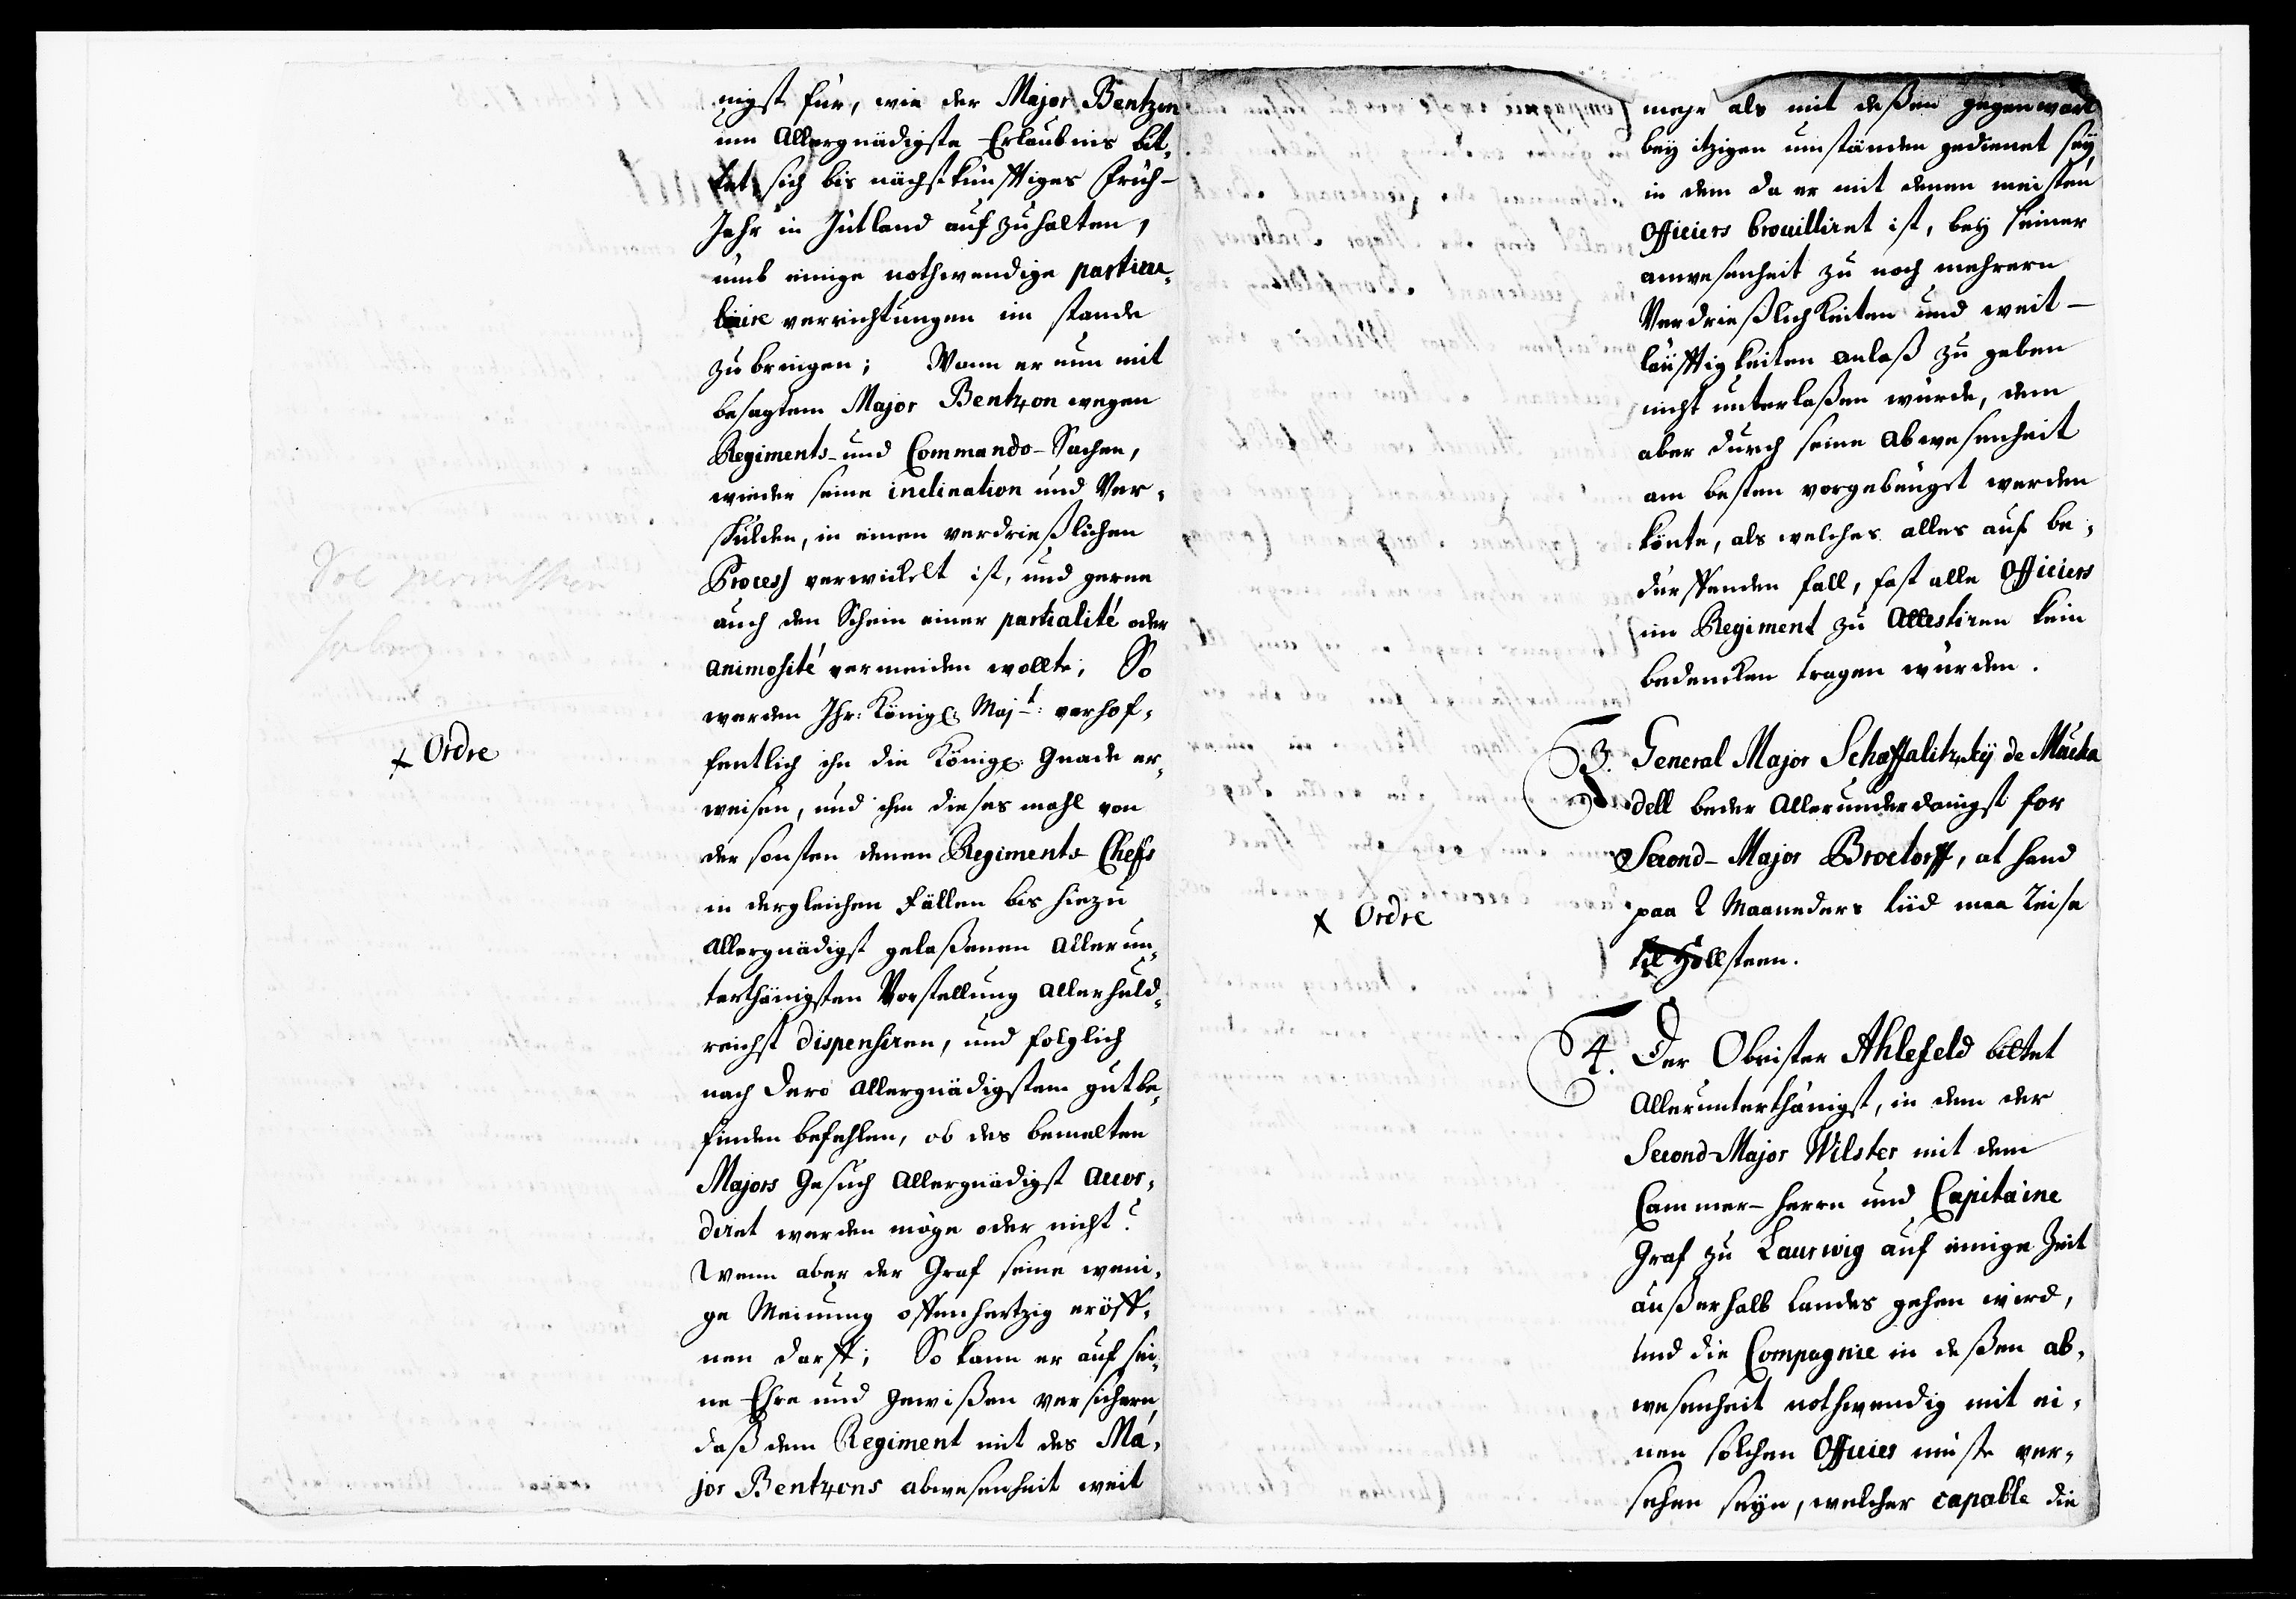 nigst für, wie der Major Bentzon
um Allergnädigste Erlaubnis bit¬
tet, sich bis nächstkünfftiges Früh-
Jahr in Jütland aufzuhalten,
umb einige nothwendige particu¬
laire verrichtungen im stande
zu bringen; Wann er nun mit
besagtem Major Bentzon wegen
Regiments- und Commando-Sachen,
wieder seine inclination und Ver¬
schulden, in einen verdrießlichen
Process verwickelt ist, und gerne
auch den Schein einer partialité oder
animosité vermeiden wollte; So
werden Ihr: Königl: Majt: verhof¬
fentlich ihn die Königl: Gnade er¬
weisen, und ihm dieses mahl von
der sonsten denen Regiments-Chefs
in dergleichen Fällen bis hiezu
Allergnädigst gelaßenen Allerun¬
terthänigsten Vorstellung Allerhuld¬
reichst dispensiren, und folglich
nach Dero Allergnädigstem gutbe¬
finden befehlen, ob des bemelten
Majors Gesuch Allergnädigst accor¬
diret werden möge oder nicht?
Wenn aber der Graf seine weni¬
ge Meinung offenhertzig eröff¬
nen darff; So kann er auf sei¬
ne Ehre und Gewißen versichern
daß dem Regiment mit des Ma¬
jor Bentzons abwesenheit weit
permission
x Ordre
mehr als mit deßen gegenwart
bey itzigen umständen gedienet sey,
in dem da er mit denen meisten
Officiers brouilliret ist, bey seiner
anwesenheit zu noch mehrern
Verdrießlichkeiten und weit-
läufftigkeiten anlaß zu geben
nicht unterlaßen würde, dem
aber durch seine Abwesenheit
am besten vorgebeuget werden
könte, als welches alles auf be¬
dürffenden fall, fast alle Officiers
im Regiment zu Attestiren kein
bedencken tragen würden.
3. General Major Schaffalitzkÿ de Mucka
dell beder Allerunderdanigst for
Second-Major Brocktorff, at hand
paa 2 Maaneders tiid maa Reise
til Hollsteen.
x Ordre
4. Der Obrister Ahlefeld bittet
Allerunterthänigst, in dem der
Second-Major Wilster mit dem
Cammer-Herrn und Capitaine
Graf zu Laurwig auf einige Zeit
außerhalb Landes gehen wird,
und die Compagnie in deßen ab¬
wesenheit nothwendig mit ei¬
nen solchen Officier müste ver¬
sehen seyn, welcher capable die